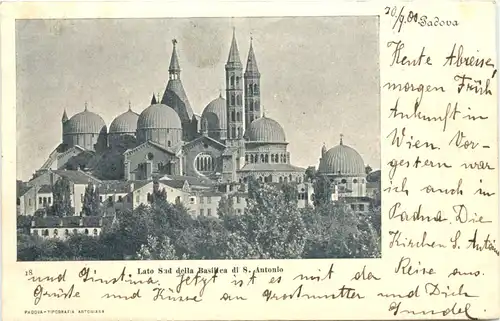 20/9.00 Padova
Heute Abreise,
morgen Früh
Ankunft in
Wien. Vor-
gestern war
ich auch in
Padua. Die
Kirchen S. Antonio
18. Lato Sud della Basilica di S. Antonio
und Giustina. Jetzt ist es mit der Reise aus.
Grüße und Küsse an Großmutter und Dich
PADOVA - TIPOGRAFIA ANTONIANA